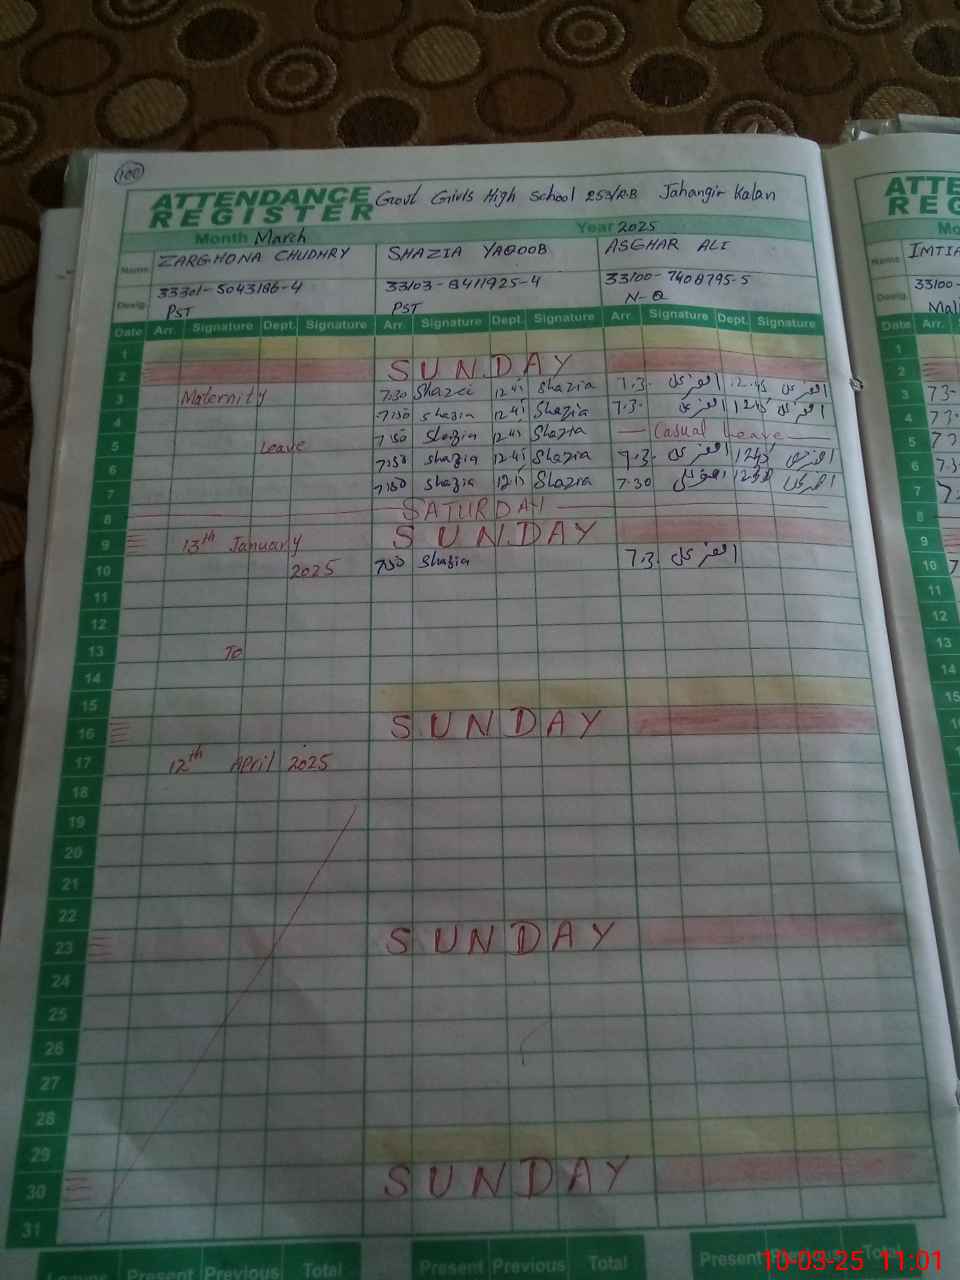 100
ATTENDANCE REGISTER Govt Girls High School 253/R.B Jahangir Kalan
Month March Year 2025
Name ZARGHONA CHUDHRY SHAZIA YAQOOB ASGHAR ALI
33301-5043186-4 33103-8411925-4 33100-7408795-5
Desig. PST PST N-Q
Date Arr. Signature Dept. Signature Arr. Signature Dept. Signature Arr. Signature Dept. Signature
1
2 SUNDAY
3 Maternity 7:30 Shazia 12:45 Shazia 7.3. 12.45
4 7:30 Shazia 12:45 Shazia 7.3. 1245
5 Leave 7:30 Shazia 12:45 Shazia Casual Leave
6 7:30 Shazia 12:45 Shazia 7.3. 1245
7 7:30 Shazia 12:15 Shazia 7.30
8 SATURDAY
9 13th January SUNDAY
10 2025 7:30 Shazia 7.3.
11
12
13 To
14
15
16 SUNDAY
17 12th April 2025
18
19
20
21
22
23 SUNDAY
24
25
26
27
28
29
30 SUNDAY
31
Leaves Present Previous Total Present Previous Total Present Previous Total
ATTE
REG
Mo
Name IMTIA
33100-
Desig. Mali
Date Arr.
1
2
3 73-
4 73-
5
6 7.3
7
8
9
10
11
12
13
14
15
10-03-25 11:01